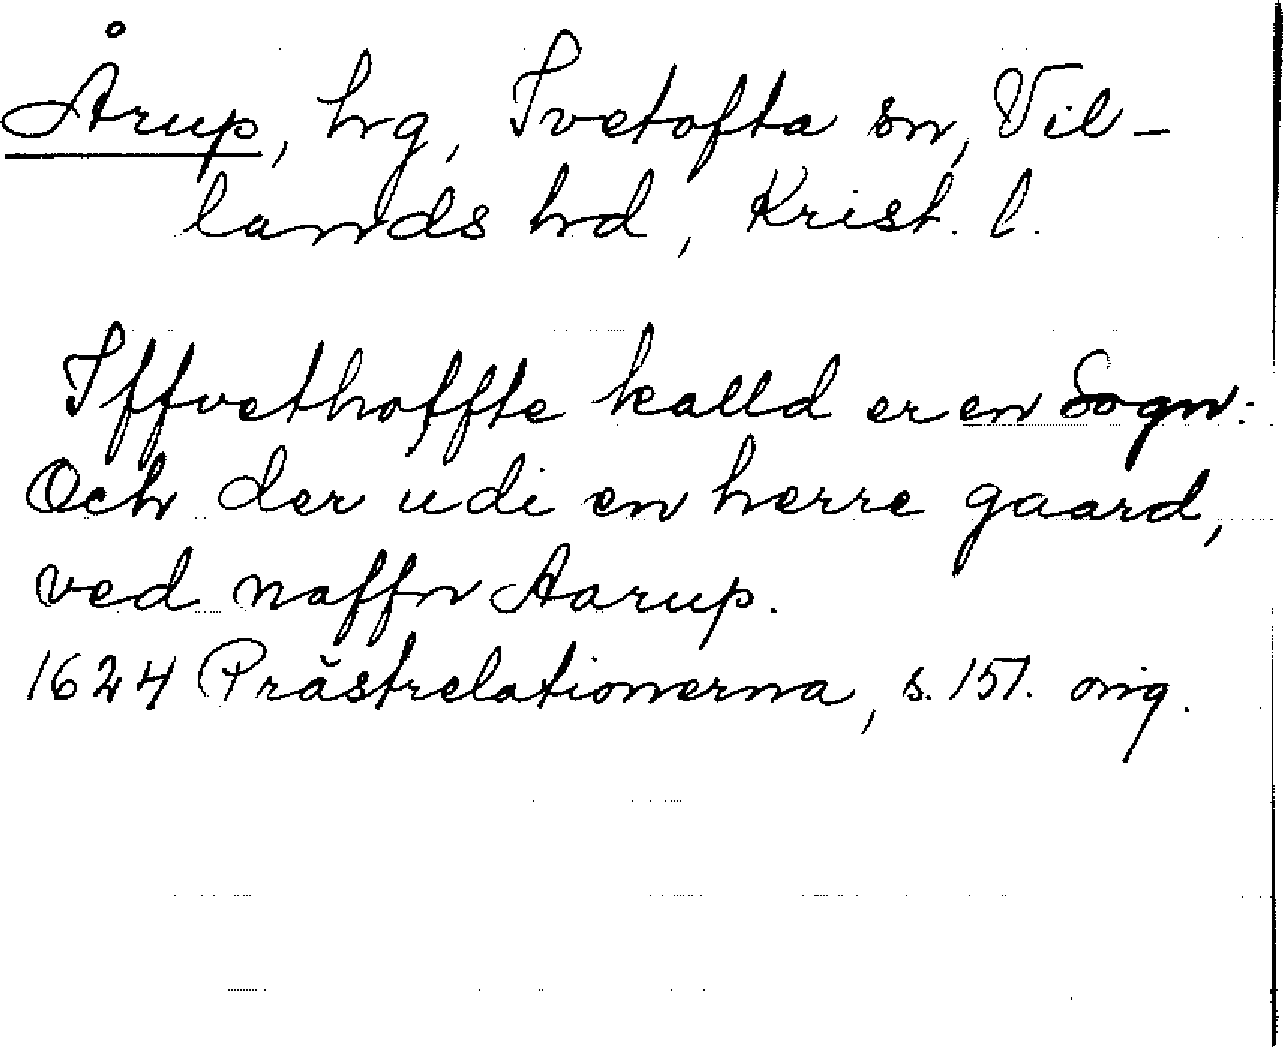 Årup, hg, Ivetofta sn, Vil-
lands hd, Krist. l.
Iffvethoffte kalld er en Sogn.
Och der udi en herre gaard,
ved naffn Aarup.
1624 Prästrelationerna, s. 151. orig.